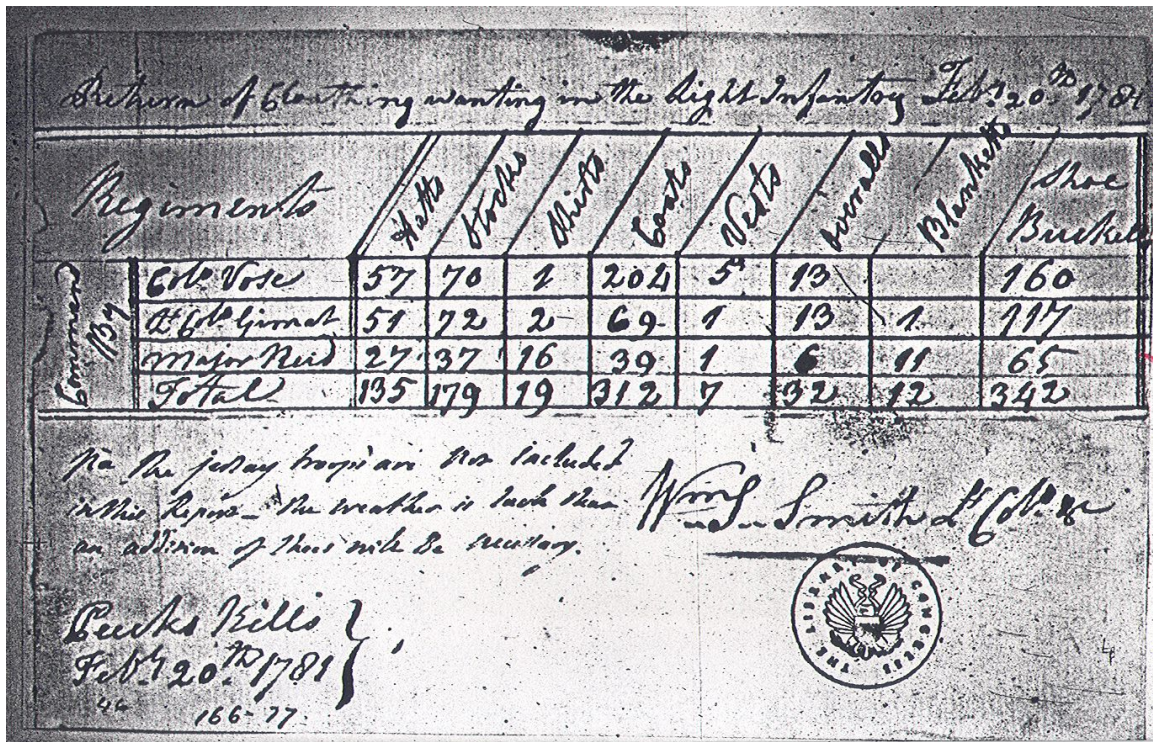 Return of Cloathing wanting in the Light Infantry Feby. 20th 1781
Regiments Hatts Stocks Shirts Coats Vests Overalls Blanketts Shoe Buckels
Comman By
Colo. Vose 57 70 1 204 5 13 160
Lt Colo. Gimat 51 72 2 69 1 13 1 117
Major Reid 27 37 16 39 1 6 11 65
Total 135 179 19 312 7 32 12 342
The Jersey troops are not included
in this Report - the weather is such that
an addition of shoes will be necessary.
Wm. S. Smith Lt Colo. &c
Peeks Kills
Feby. 20th 1781
46
166-77
THE LIBRARY OF CONGRESS